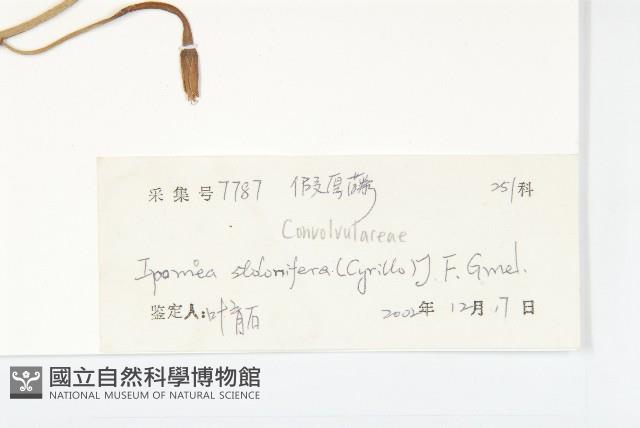 采集号 7787 假厚藤 251科
Convolvulareae
Ipomoea stolonifera (Cyrillo) J. F. Gmel.
鉴定人: 叶育石 2002年 12月 17日
國立自然科學博物館
NATIONAL MUSEUM OF NATURAL SCIENCE